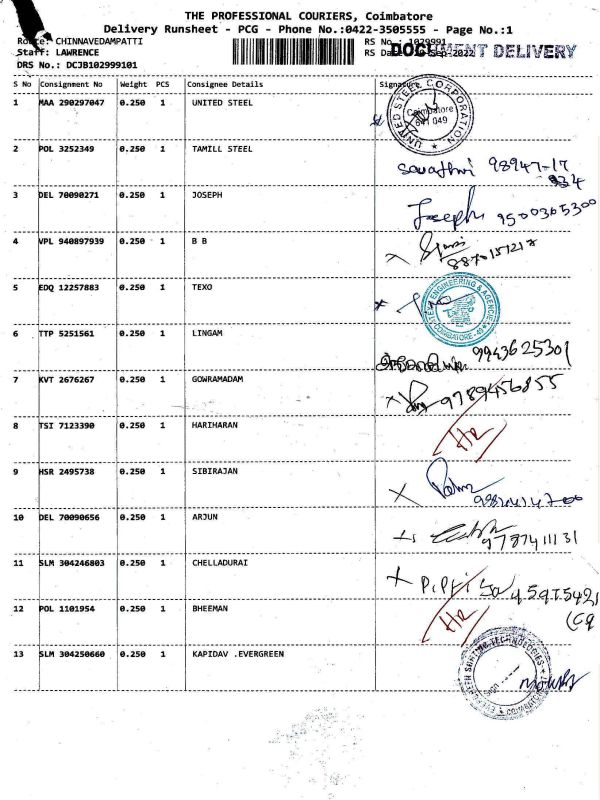 THE PROFESSIONAL COURIERS, Coimbatore
Delivery Runsheet - PCG - Phone No.:0422-3505555 - Page No.:1
Route: CHINNAVEDAMPATTI RS No.: 1029991
Staff: LAWRENCE RS Date: Sep-2022 DOCUMENT DELIVERY
DRS No.: DCJB102999101
S No Consignment No Weight PCS Consignee Details Signature
1 MAA 290297047 0.250 1 UNITED STEEL UNITED STEEL CORPORATION Coimbatore 641 049
2 POL 3252349 0.250 1 TAMILL STEEL 98947-17
934
3 DEL 70090271 0.250 1 JOSEPH Joseph 9500365300
4 VPL 940897939 0.250 1 B B
5 EDQ 12257883 0.250 1 TEXO ENGINEERING & AGENCIES COIMBATORE
6 TTP 5251561 0.250 1 LINGAM 9943625301
7 KVT 2676267 0.250 1 GOWRAMADAM 9789456855
8 TSI 7123390 0.250 1 HARIHARAN
9 HSR 2495738 0.250 1 SIBIRAJAN
10 DEL 70090656 0.250 1 ARJUN 9787411131
11 SLM 304246803 0.250 1 CHELLADURAI
12 POL 1101954 0.250 1 BHEEMAN
13 SLM 304250660 0.250 1 KAPIDAV .EVERGREEN EVERGREEN TECHNOLOGIES